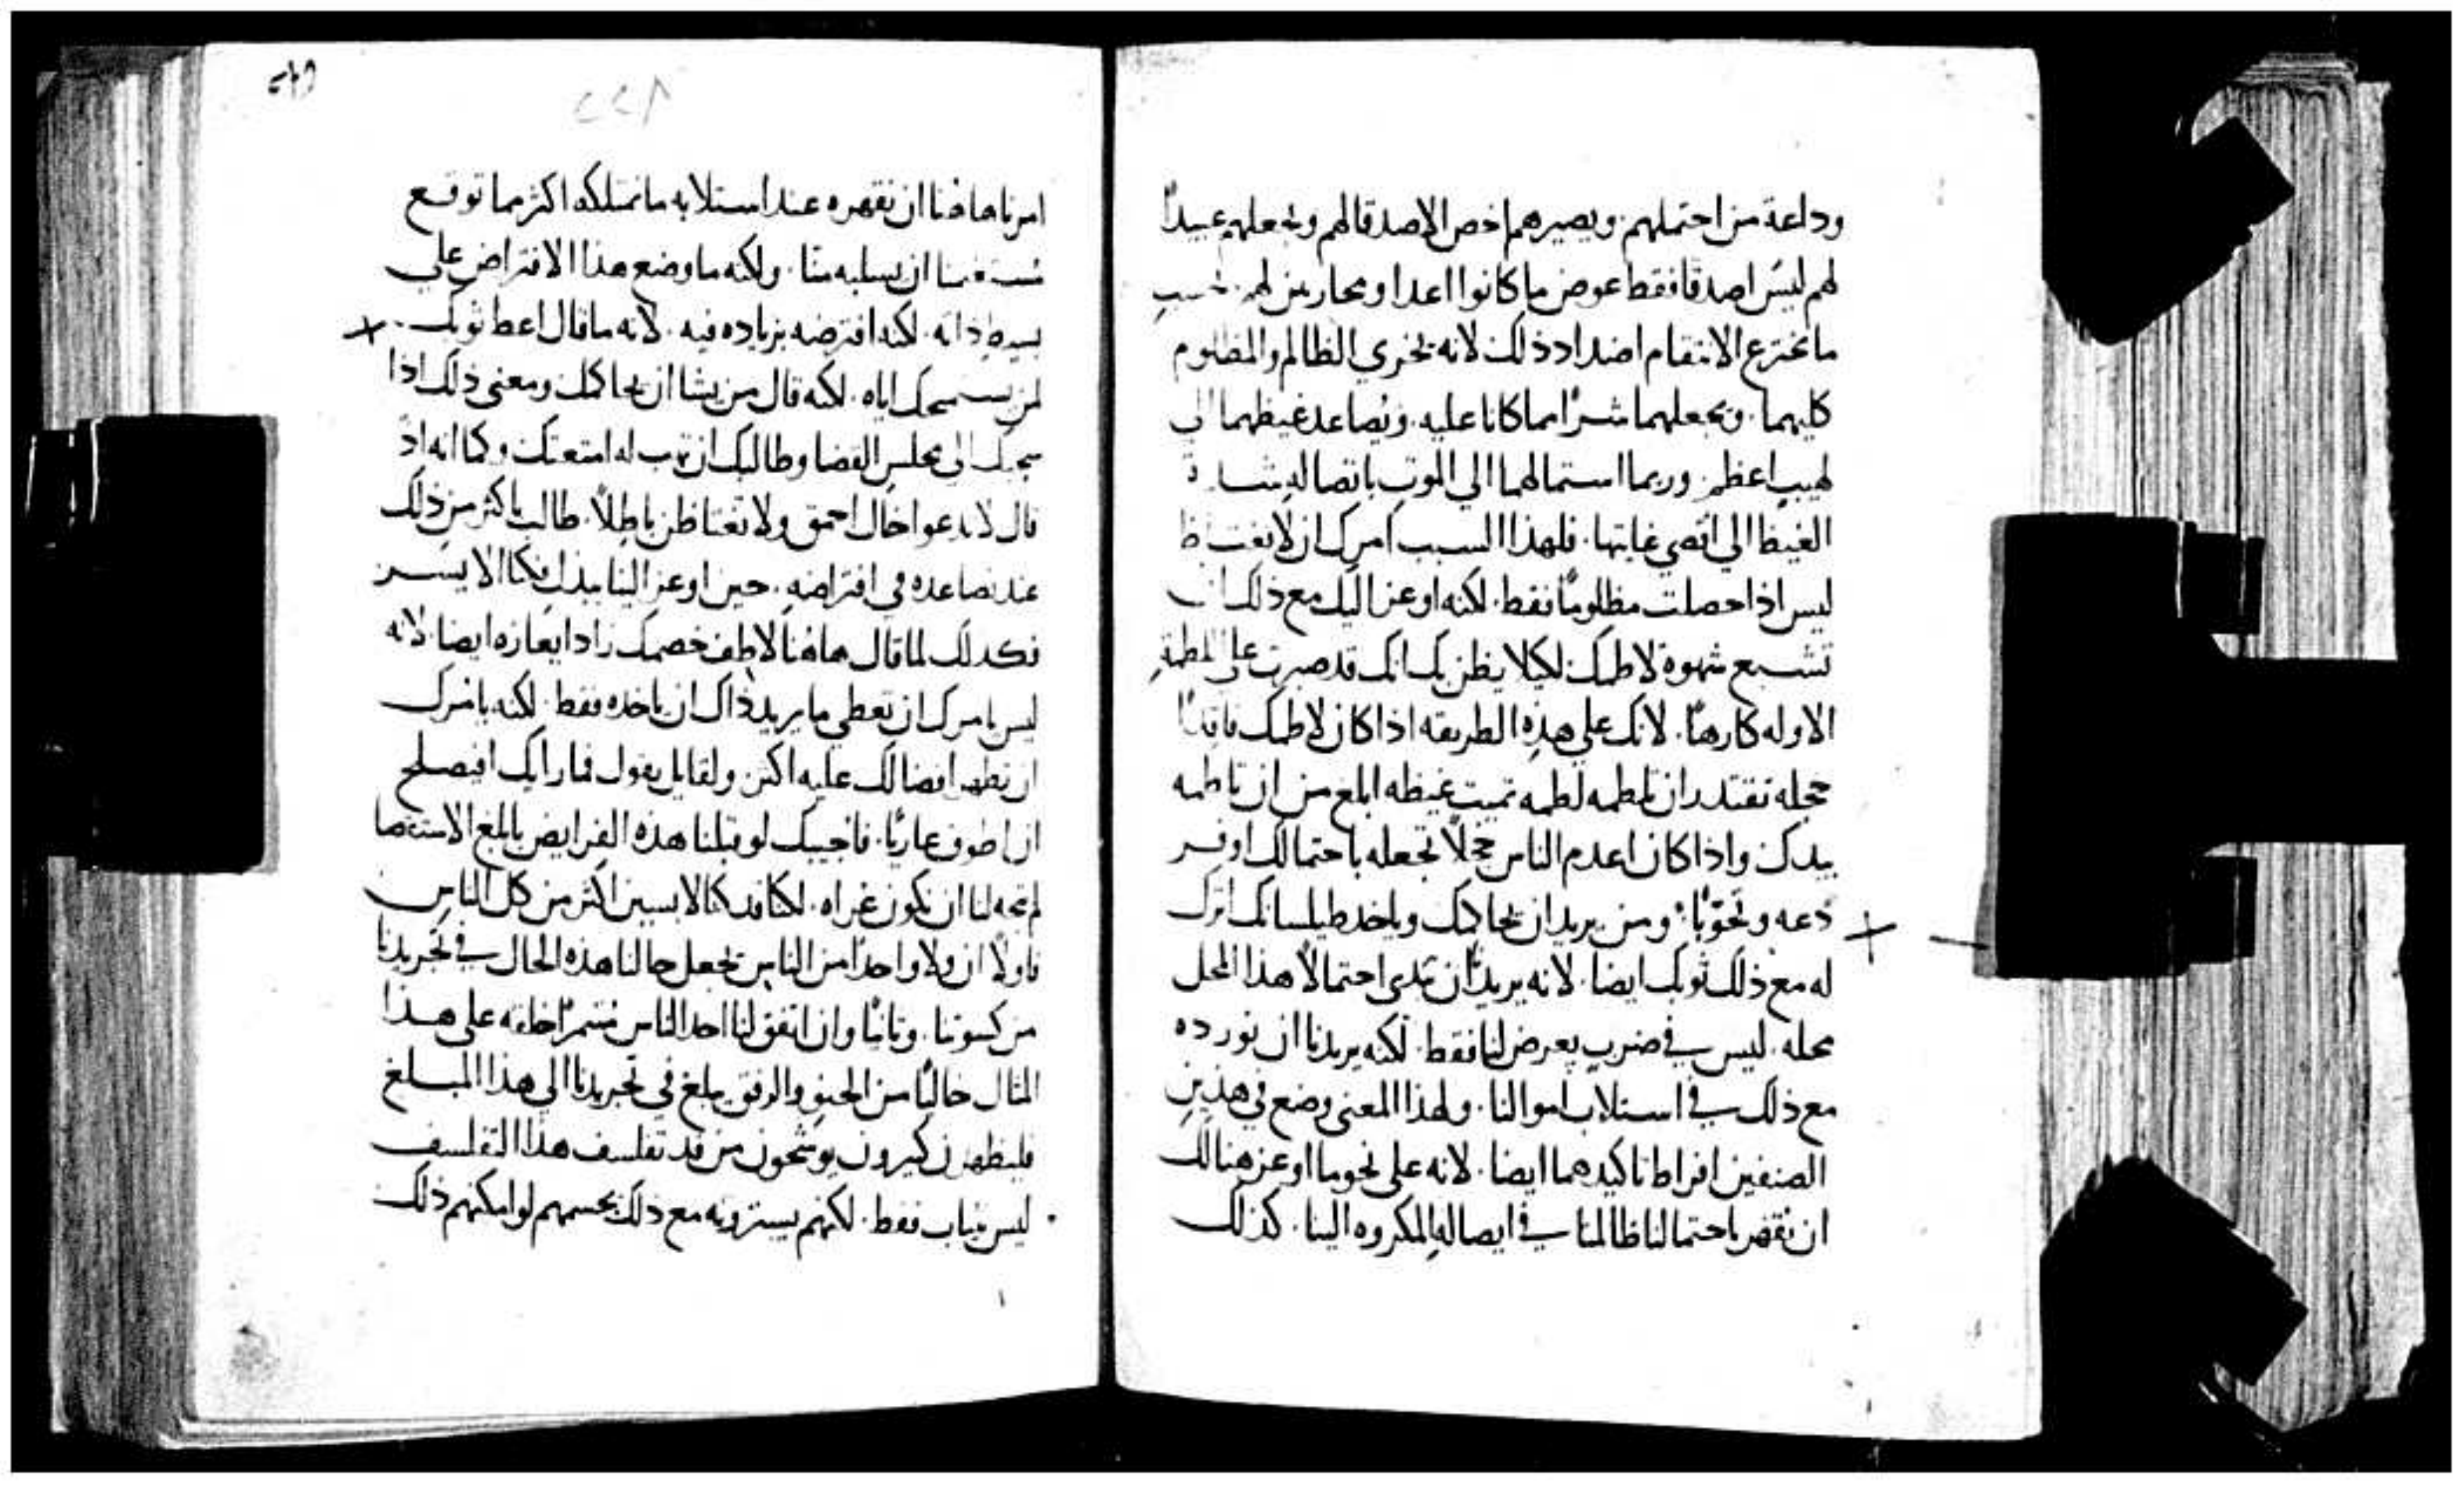 وداعة من احتملهم. ويصيرهم اخص الاصدقا لهم ويجعلهم عبيداً
لهم ليس اصدقا فقط عوض ما كانوا اعدا ومحاربين لهم.
ما يخترع الانتقام اضداد ذلك لانه يخزي الظالم والمظلوم
كليهما. ويجعلهما شراً مما كانا عليه. ويُصاعد غيظهما الي
لهيبٍ اعظم. وربما استمالهما الي الموت باتصاله
الغيظ الي اقصي غايتها. فلهذا السبب امرك ان لا تغتاظ
ليس اذا حصلت مظلوماً فقط. لكنه اوعز اليك مع ذلك ان
تشبع شهوة لاطمك لكيلا يظن بك انك قد صبرت علي اللطمةِ
الاوله كارهاً. لانك علي هذه الطريقه اذا كان لاطمك فاقداً
خجله تقتدر ان تلطمه لطمه تميت غيظه ابلغ من ان تلطمه
بيدك واذا كان اعدم الناس خجلاً تجعله باحتمالك اوفر
دعه وتحوّبا: ومن يريد ان يحاكمك وياخد طيلسانك اترك
له مع ذلك ثوبك ايضا. لانه يريد ان تبدى احتمالاً هذا المحل
محله. ليس في ضربٍ يعرض لنا فقط. لكنه يريدنا ان نورده
مع ذلك في استلاب اموالنا. ولهذا المعنى وضع في هذين
الصنفين افراطا تاكيدهما ايضا. لانه على نحو ما اوعز هنالك
ان نقهر باحتمالنا ظالمنا في ايصاله المكروه الينا. كذلك
امرنا هاهنا ان نقهره عند استلابه ما نمتلكه اكثر مما توقع
ان يسلبه منّا. ولكنه ما وضع هذا الافتراض علي
بسيط ذاته. لكنه افترضه بزياده فيه. لانه ما قال اعط ثوبك
لمن يستمحك اياه. لكنه قال من يشا ان يحاكمك ومعنى ذلك اذا
سحبك الى مجلس القضا وطالبك ان تهب له امتعتك وكما انه اذ
قال لا تدعو اخاك احمق ولا تغتاظن باطِلاً. طالب باكثر من ذلك
عند تصاعده في افتراضهِ. حين اوعز الينا ببذل فكنا الايسر
فكذلك لما قال هاهنا لاطف خصمك زاد ايعازه ايضا. لانه
ليس يامرك ان تعطي ما يريد ذاك ان ياخده فقط. لكنه يامرك
ان تظهر افضالك عليه اكثر. ولقايل يقول فما رايك افيصلح
ان اطوف عاريًا. فاجيبك لو قبلنا هذه الفرايض بابلغ الاستقصا
لم يجه لنا ان نكون عراه. لكنا قد كنا لابسين اكثر من كل الناس
فاولاً ان ولا واحدًا من الناس يجعل حالنا هذه الحال في تجريدنا
من كسوتنا. وثانيًا وان اتفق لنا احد الناس متنمراً خلقه على هذا
المثال خاليًا من الحنوِ والرفق يبلغ في تجريدنا الي هذا المبلغ
فليظهرن كثيرون يوشحون من قد تفلسف هذا التفلسف
ليس بثياب فقط. لكنهم يسترونه مع ذلك بجسمهم لو امكنهم ذلك